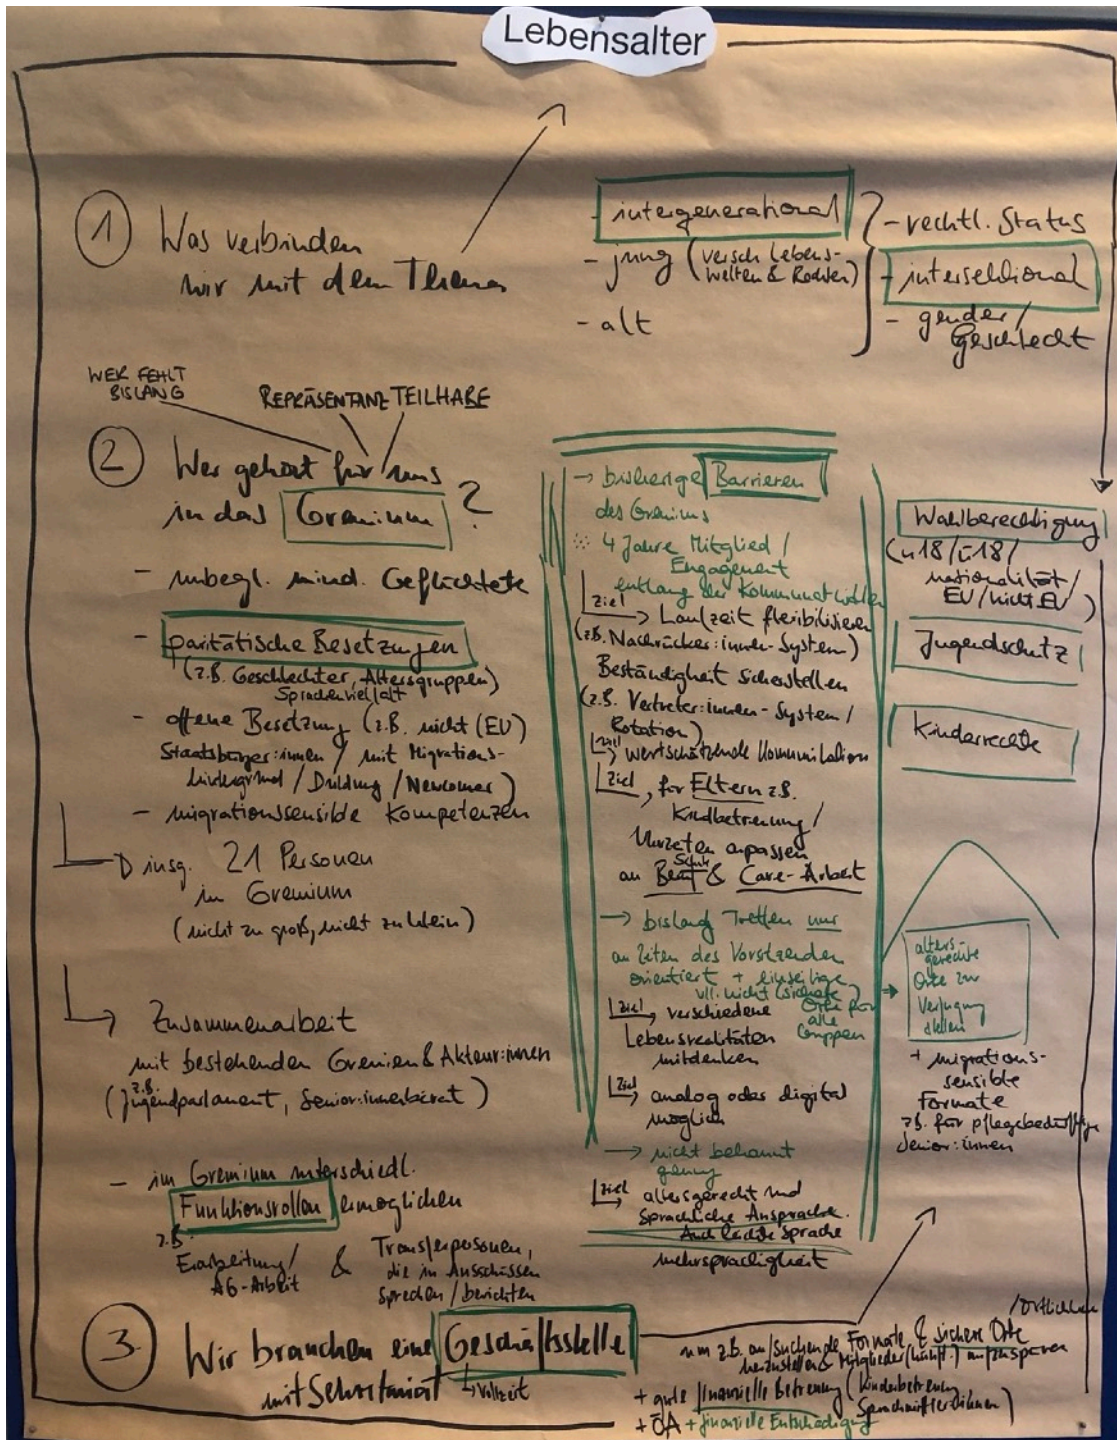 Lebensalter
① Was verbinden
wir mit dem Thema
- intergenerational
- jung (versch. Lebens-
welten & Rechten)
- alt
- rechtl. Status
- intersektional
- gender/
Geschlecht
WER FEHLT
BISLANG
REPRÄSENTANZ TEILHABE
② Wer gehört für uns
in das Gremium ?
- unbegl. mind. Geflüchtete
- paritätische Besetzungen
(z.B. Geschlechter, Altersgruppen)
Sprachenvielfalt
- offene Besetzung (z.B. nicht (EU)
Staatsbürger:innen / mit Migrations-
hintergrund / Duldung / Newcomer)
- migrationssensible Kompetenzen
insg. 21 Personen
im Gremium
(nicht zu groß, nicht zu klein)
Zusammenarbeit
mit bestehenden Gremien & Akteur:innen
(z.B. Jugendparlament, Senior:innenbeirat)
- im Gremium unterschiedl.
Funktionsrollen ermöglichen
z.B.
Erarbeitung/
AG-Arbeit
& Transferpersonen,
die in Ausschüssen
sprechen / berichten
→ bisherige Barrieren
des Gremiums
4 Jahre Mitglied /
Engagement
entlang der Kommunalwahlen
Ziel → Laufzeit flexibilisieren
(z.B. Nachrücker:innen-System)
Beständigkeit sicherstellen
(z.B. Vertreter:innen-System /
Rotation)
Ziel → wertschätzende Kommunikation
Ziel, für Eltern z.B.
Kindbetreuung /
Uhrzeiten anpassen
an Beruf & Care-Arbeit
Schule
→ bislang Treffen nur
an Zeiten des Vorsitzenden
orientiert + einseitige
vll. nicht (sichere)
Orte für
alle
Gruppen
Ziel → verschiedene
Lebensrealitäten
mitdenken
Ziel → analog oder digital
möglich
→ nicht bekannt
genug
Ziel → altersgerecht und
sprachliche Ansprache.
Auch leichte Sprache
mehrsprachigkeit
Wahlberechtigung
(u18/ü18/
nationalität/
EU/nicht EU)
Jugendschutz
Kinderrechte
alters-
gerechte
Orte zur
Verfügung
stellen
+ migrations-
sensible
Formate
z.B. für pflegebedürftige
Senior:innen
③ Wir brauchen eine Geschäftsstelle
mit Sekretariat ↳ Vollzeit
/Örtlichkeiten
um z.B. aufsuchende Formate & sichere Orte
herzustellen & Mitglieder (künft.) aufzuspüren
+ gute finanzielle Betreuung (Kinderbetreuung
Sprachmittler:innen)
+ ÖA + finanzielle Entschädigung